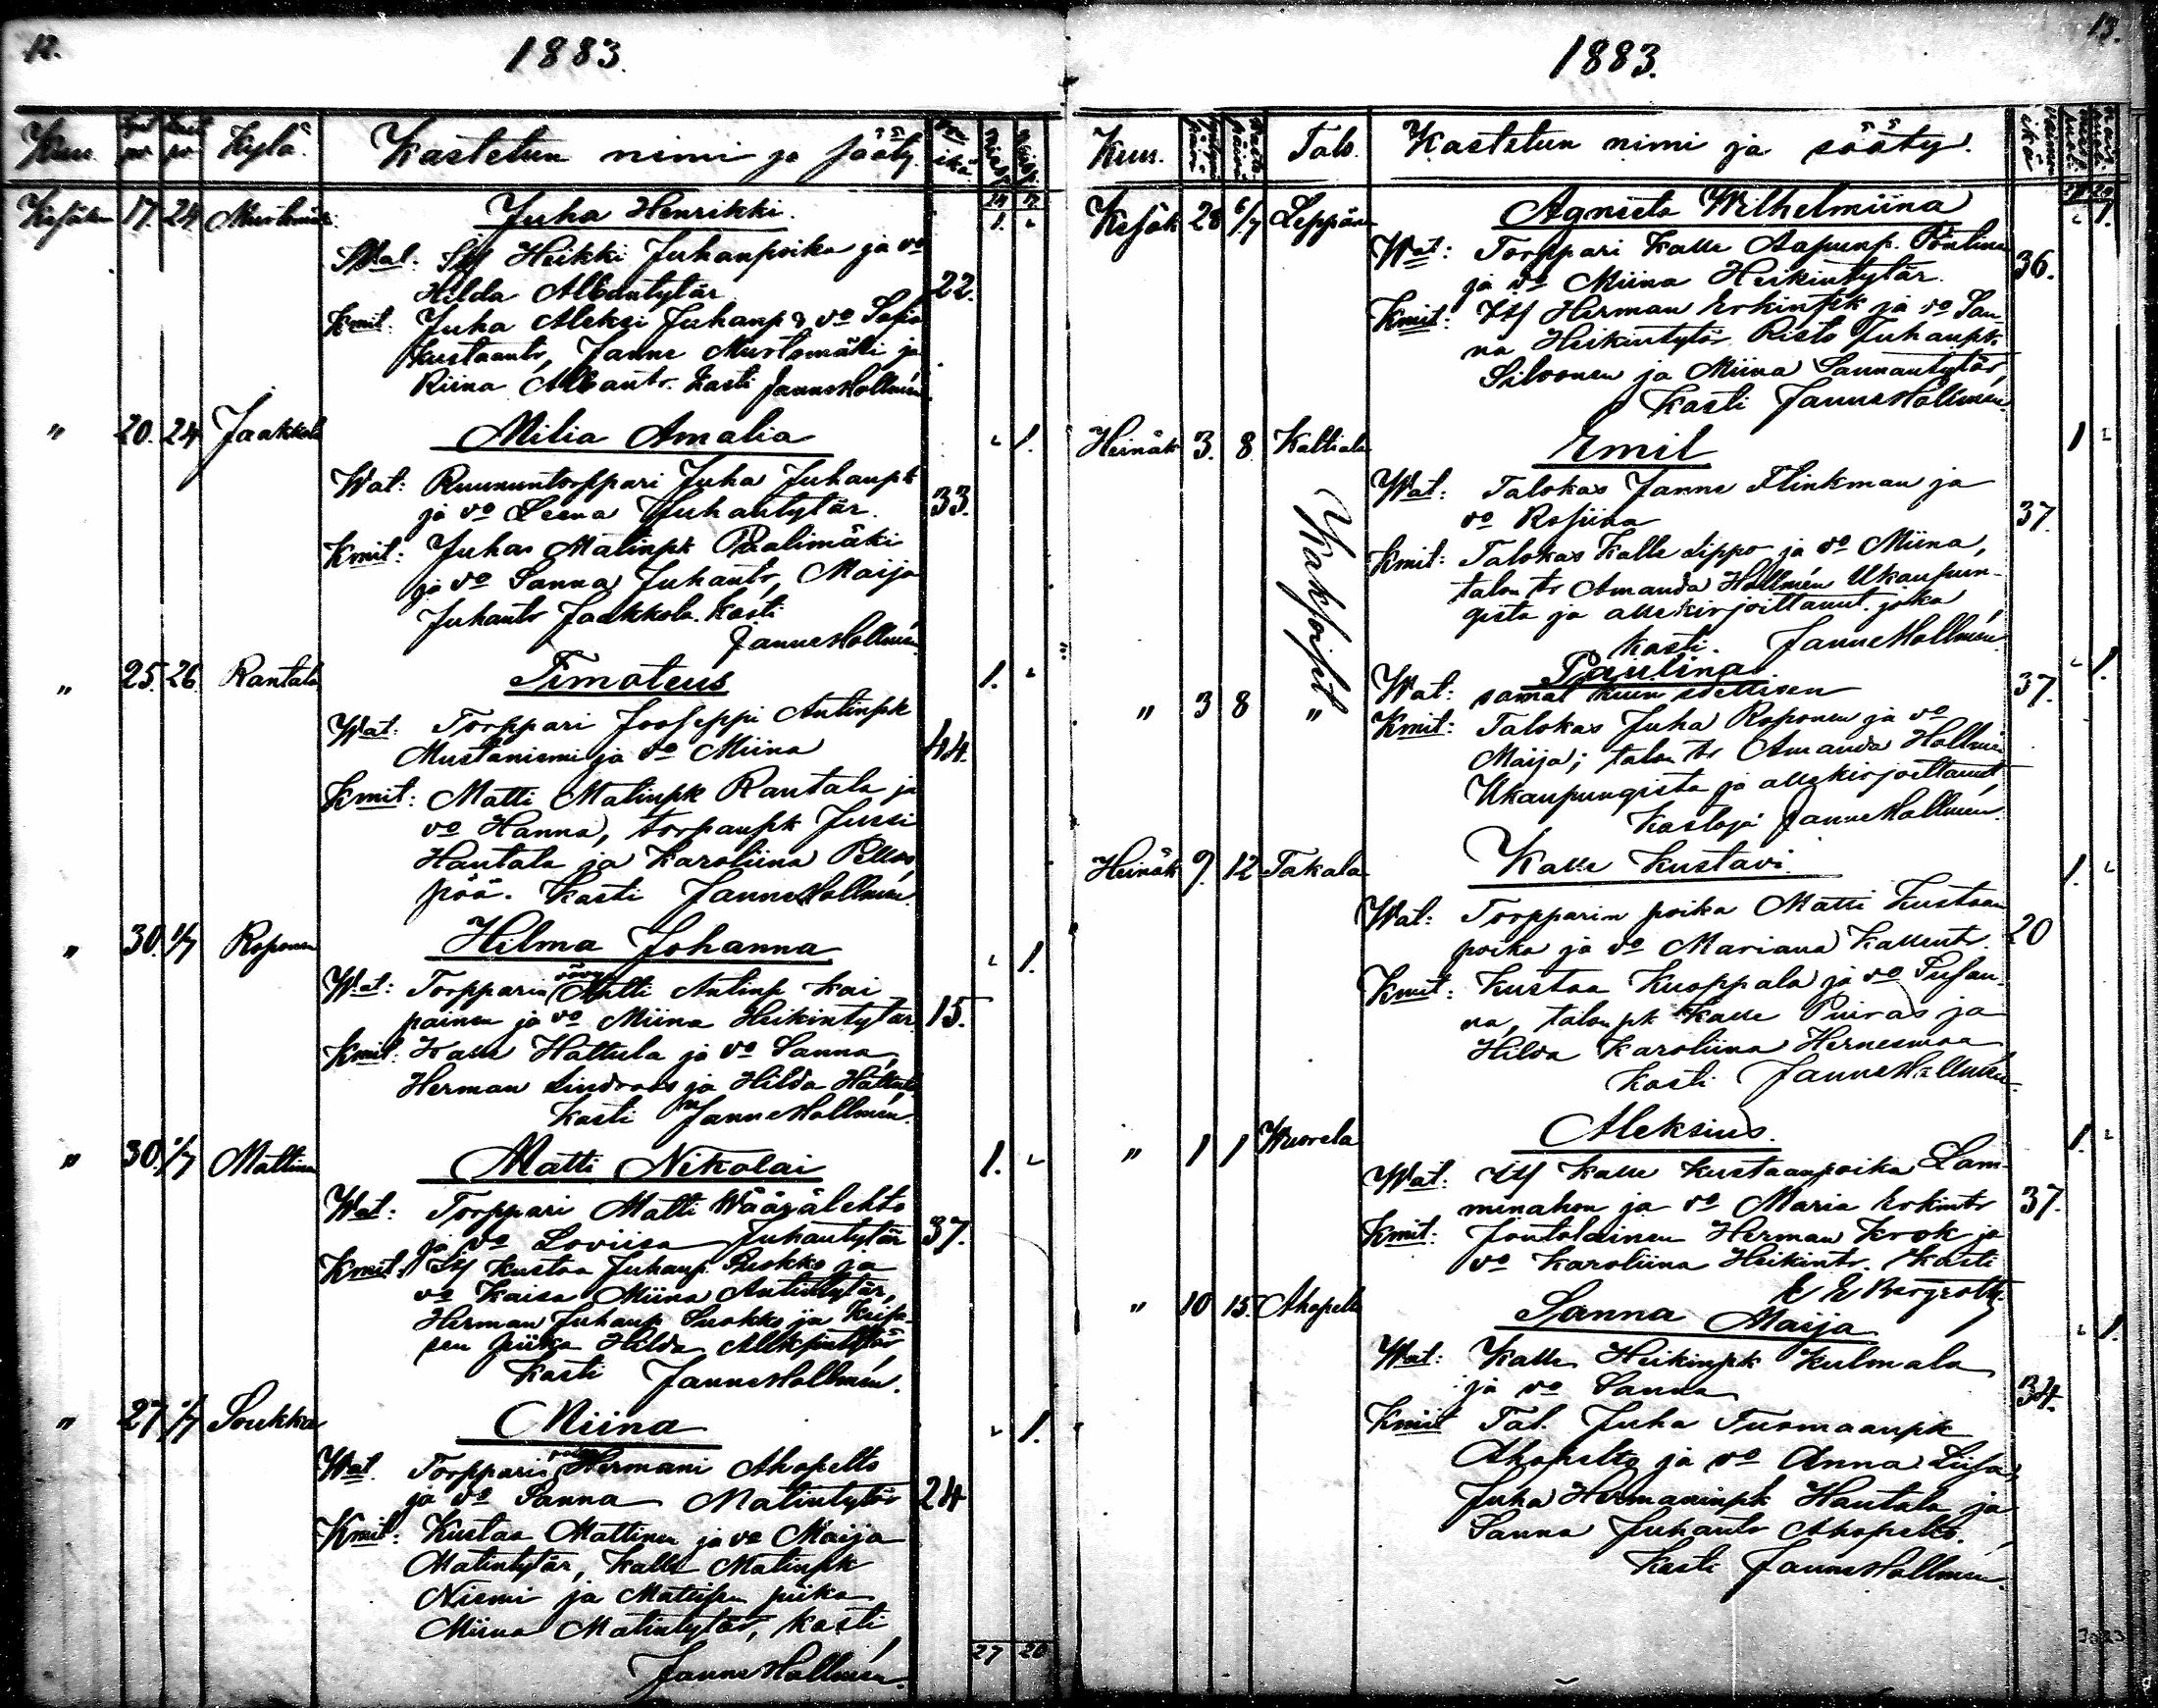 12.
1883.
Kuu. Kylä. Kastetun nimi ja sääty.
24 19
Kesäkuu 17. 24 Murtomäki Juha Henrikki. 1. "
Wat: Its Heikki Juhanpoika ja vo
Hilda Albantytär 22.
Kmit: Juha Aleksi Juhanp & vo Sofia
Kustaantr, Janne Murtomäki ja
Riina Albantr. Kasti Janne Hollmén.
" 20. 24 Jaakkola Milia Amalia " 1.
Wat: Ruununtorppari Juha Juhanpk
ja vo Leena Juhantytär. 33.
Kmit: Juhas Matinpk Paalimäki
ja vo Sanna Juhantr, Maija
Juhantr Jaakkola. Kasti
Janne Hollmén.
" 25. 26. Rantala Timoteus 1. "
Wat: Torppari Jooseppi Antinpk
Mustaniemi ja vo Miina 44.
Kmit: Matti Matinpk Rantala ja
vo Hanna, torpanpk Jussi
Hautala ja Karoliina Pellon
pää. Kasti Janne Hollmén.
" 30. 1/7 Roponen Hilma Johanna " 1.
Wat: Torpparin vävy Antti Antinp Kai
painen ja vo Miina Heikintytär. 15.
Kmit: Kalle Hattula ja vo Sanna,
Herman Lindroos ja Hilda Hattula
Kasti Janne Hollmén.
" 30. 1/7 Mattinen Matti Nikolai 1. "
Wat: Torppari Matti Wäärälehto
ja vo Loviisa Juhantytär 37.
Kmit: Its Kustaa Juhanp. Ruokko ja
vo Kaisa Miina Antintytär,
Herman Juhanp Suokko ja
sen piika Hilda
Kasti Janne Hollmén.
" 27 1/7 Soukka Miina " 1.
Wat. Torpparin Hermani Ahopelto
ja vo Sanna Matintytär 24
Kmit: Kustaa Mattinen ja vo Maija
Matintytär, Kalle Matinpk
Niemi ja Matisen piika
Miina Matintytär, Kasti
Janne Hollmén.
27 20
13.
1883.
Kuu. Talo. Kastetun nimi ja sääty. ikä
27 20
Kesäk 28 6/7 Leppänen Agneeta Wilhelmiina " 1.
Wat: Torppari Kalle Aapunp. Pöntinen
ja vo Miina Heikintytär. 36.
Kmit: Its Herman Erkinpk ja vo San
na Heikintytär. Risto Juhanpk.
Silvonen ja Miina Sannantytär,
Kasti Janne Hollmén.
Heinäk 3. 8. Kaltiala Emil 1 "
Kaksoiset
Wat: Talokas Janne Flinkman ja
vo Rosiina 37.
Kmit: Talokas Kalle Lippo ja vo Miina,
talon tr Amanda Hollmén Ukaupun-
gista ja allekirjoittanut. joka
kasti. Janne Hollmén.
" 3 8 " Pauliina " 1.
Wat: samat kuin edellisen 37.
Kmit: Talokas Juha Roponen ja vo
Maija; talon tr Amanda Hollmén
Ukaupungista ja allekirjoittanut
Kastaja Janne Hollmén.
Heinäk 9. 12 Takala Kalle Kustavi. 1. "
Wat: Torpparin poika Matti Kustaan
poika ja vo Mariana Kallentr. 20
Kmit: Kustaa Kuoppala ja vo Susan-
na, talon pk Kalle Puiras ja
Hilda Karoliina Hernesmaa
Kasti Janne Hollmén.
" 1 1 Wuorela Aleksius. 1. "
Wat: Its Kalle Kustaanpoika Lam-
minahon ja vo Maria Erkintr 37.
Kmit: Joutolainen Herman Krok ja
vo Karoliina Heikintr. Kasti
K E Bergroth.
" 10 15. Ahopelto Sanna Maija " 1.
Wat: Kalle Heikinpk Kulmala
ja vo Sanna 34.
Kmit Tal. Juha Tuomaanpk
Ahopelto ja vo Anna Liisa,
Juha Hermaninpk Hautala ja
Sanna Juhantr Ahopelto.
Kasti Janne Hollmén.
30 23